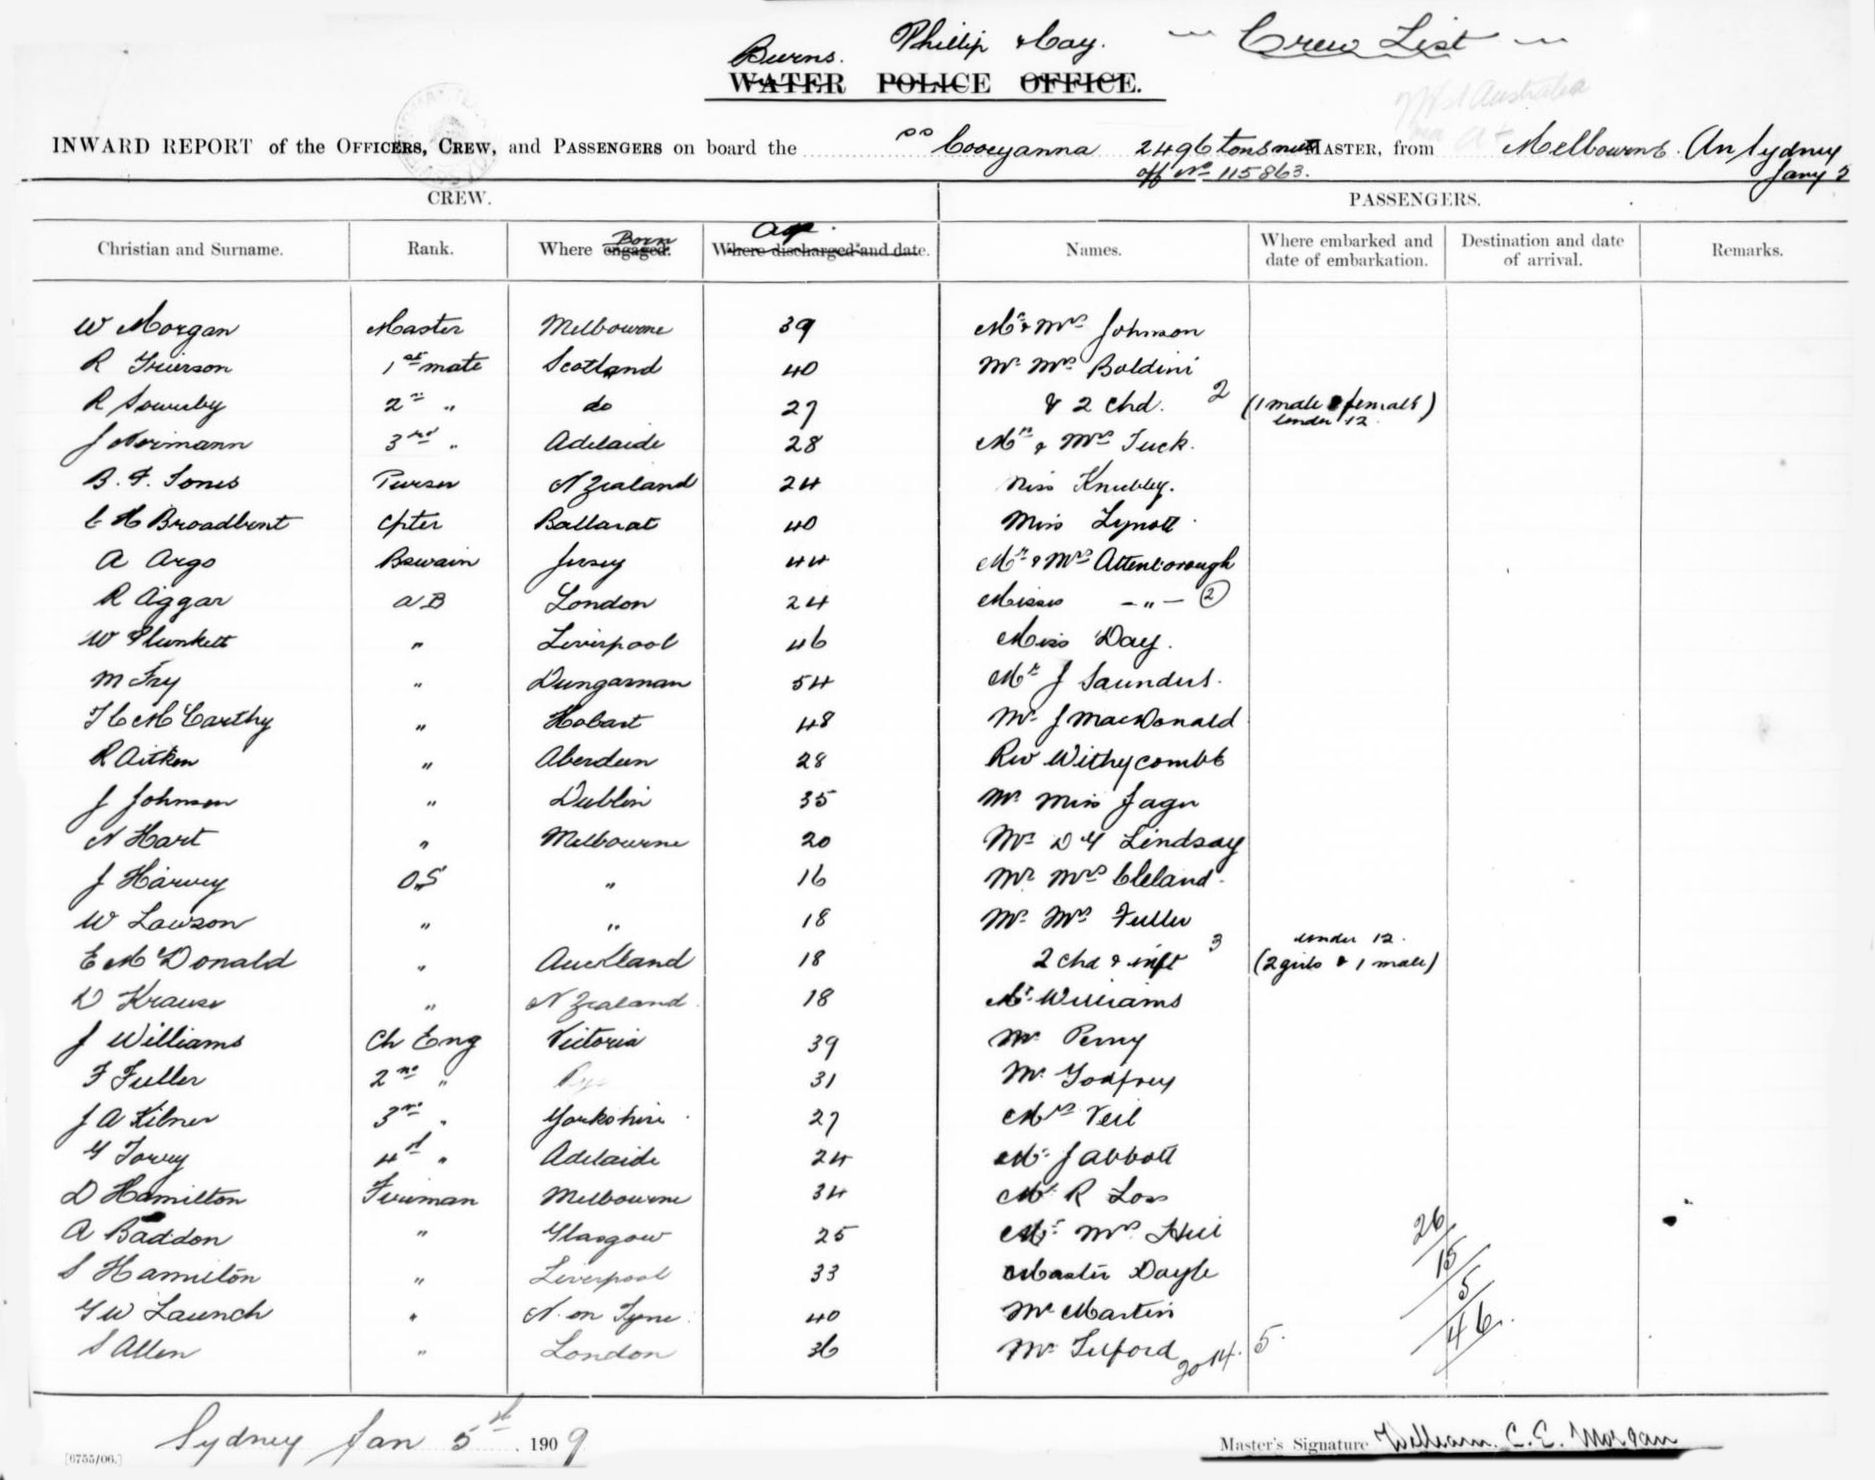 Burns. Phillip & Coy. Crew List
WATER POLICE OFFICE.
West Australia
INWARD REPORT of the OFFICERS, CREW, and PASSENGERS on board the SS Cooeyanna 2496 tons nett MASTER, from Melbourne. Arr Sydney
off No 115863. Jany 5
CREW. PASSENGERS.
Christian and Surname. Rank. Where engaged. Born Where discharged and date. Age. Names. Where embarked and date of embarkation. Destination and date of arrival. Remarks.
W Morgan Master Melbourne 39 Mr & Mrs Johnson
R Grierson 1st mate Scotland 40 Mr Mrs Baldini
R Sowerby 2nd " do 27 & 2 chd. 2 (1 male & female)
under 12.
J Normann 3rd " Adelaide 28 Mr & Mrs Tuck.
B. F. Jones Purser N Zealand 24 Miss Knubley.
C H Broadbent Cpter Ballarat 40 Miss Lynott
A Argo Bswain Jersey 44 Mr & Mrs Attenborough
R Aggar AB London 24 Misses — " — 2
W Plunkett " Liverpool 46 Miss Day.
M Fry " Dungarnan 54 Mr J Saunders.
T C McCarthy " Hobart 48 Mr J MacDonald
R Aitken " Aberdeen 28 Rev Withycombe
J Johnson " Dublin 35 Mr Miss Jager
N Hart " Melbourne 20 Mr D G Lindsay
J Harvey O.S " 16 Mr Mrs Cleland
W Lawson " " 18 Mr Mrs Fuller
under 12.
E McDonald " Auckland 18 2 chd & inft 3 (2 girls & 1 male)
D Krause " N Zealand 18 Mr Williams
J Williams Ch Eng Victoria 39 Mr Perry
F Fuller 2nd " Rye 31 Mr Godfrey
J A Kilner 3rd " Yorkshire 27 Mrs Veil
G Torrey 4th " Adelaide 24 Mr J Abbott
D Hamilton Fireman Melbourne 34 Mr R Loss
A Baddon " Glasgow 25 Mr Mrs Hill 26
S Hamilton " Liverpool 33 Master Doyle 15
G W Launch " N. on Tyne 40 Mr Martin 5
S Allen " London 36 Mr Telford 20 14. 5. 46.
Sydney Jan 5th 1909 Master's Signature William. C. E. Morgan
[6755/06.]